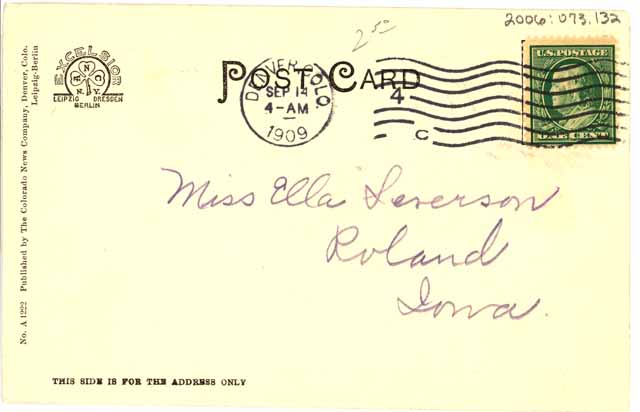 2006:073.132
2.50
U.S. POSTAGE
ONE CENT
POST CARD
DENVER, COLO.
SEP 14
4-AM
1909
4
C
EXCELSIOR
N
N.Y.
LEIPZIG DRESDEN
BERLIN
No. A 1222 Published by The Colorado News Company, Denver, Colo.
Leipzig-Berlin
Miss Ella Severson
Roland
Iowa.
THIS SIDE IS FOR THE ADDRESS ONLY